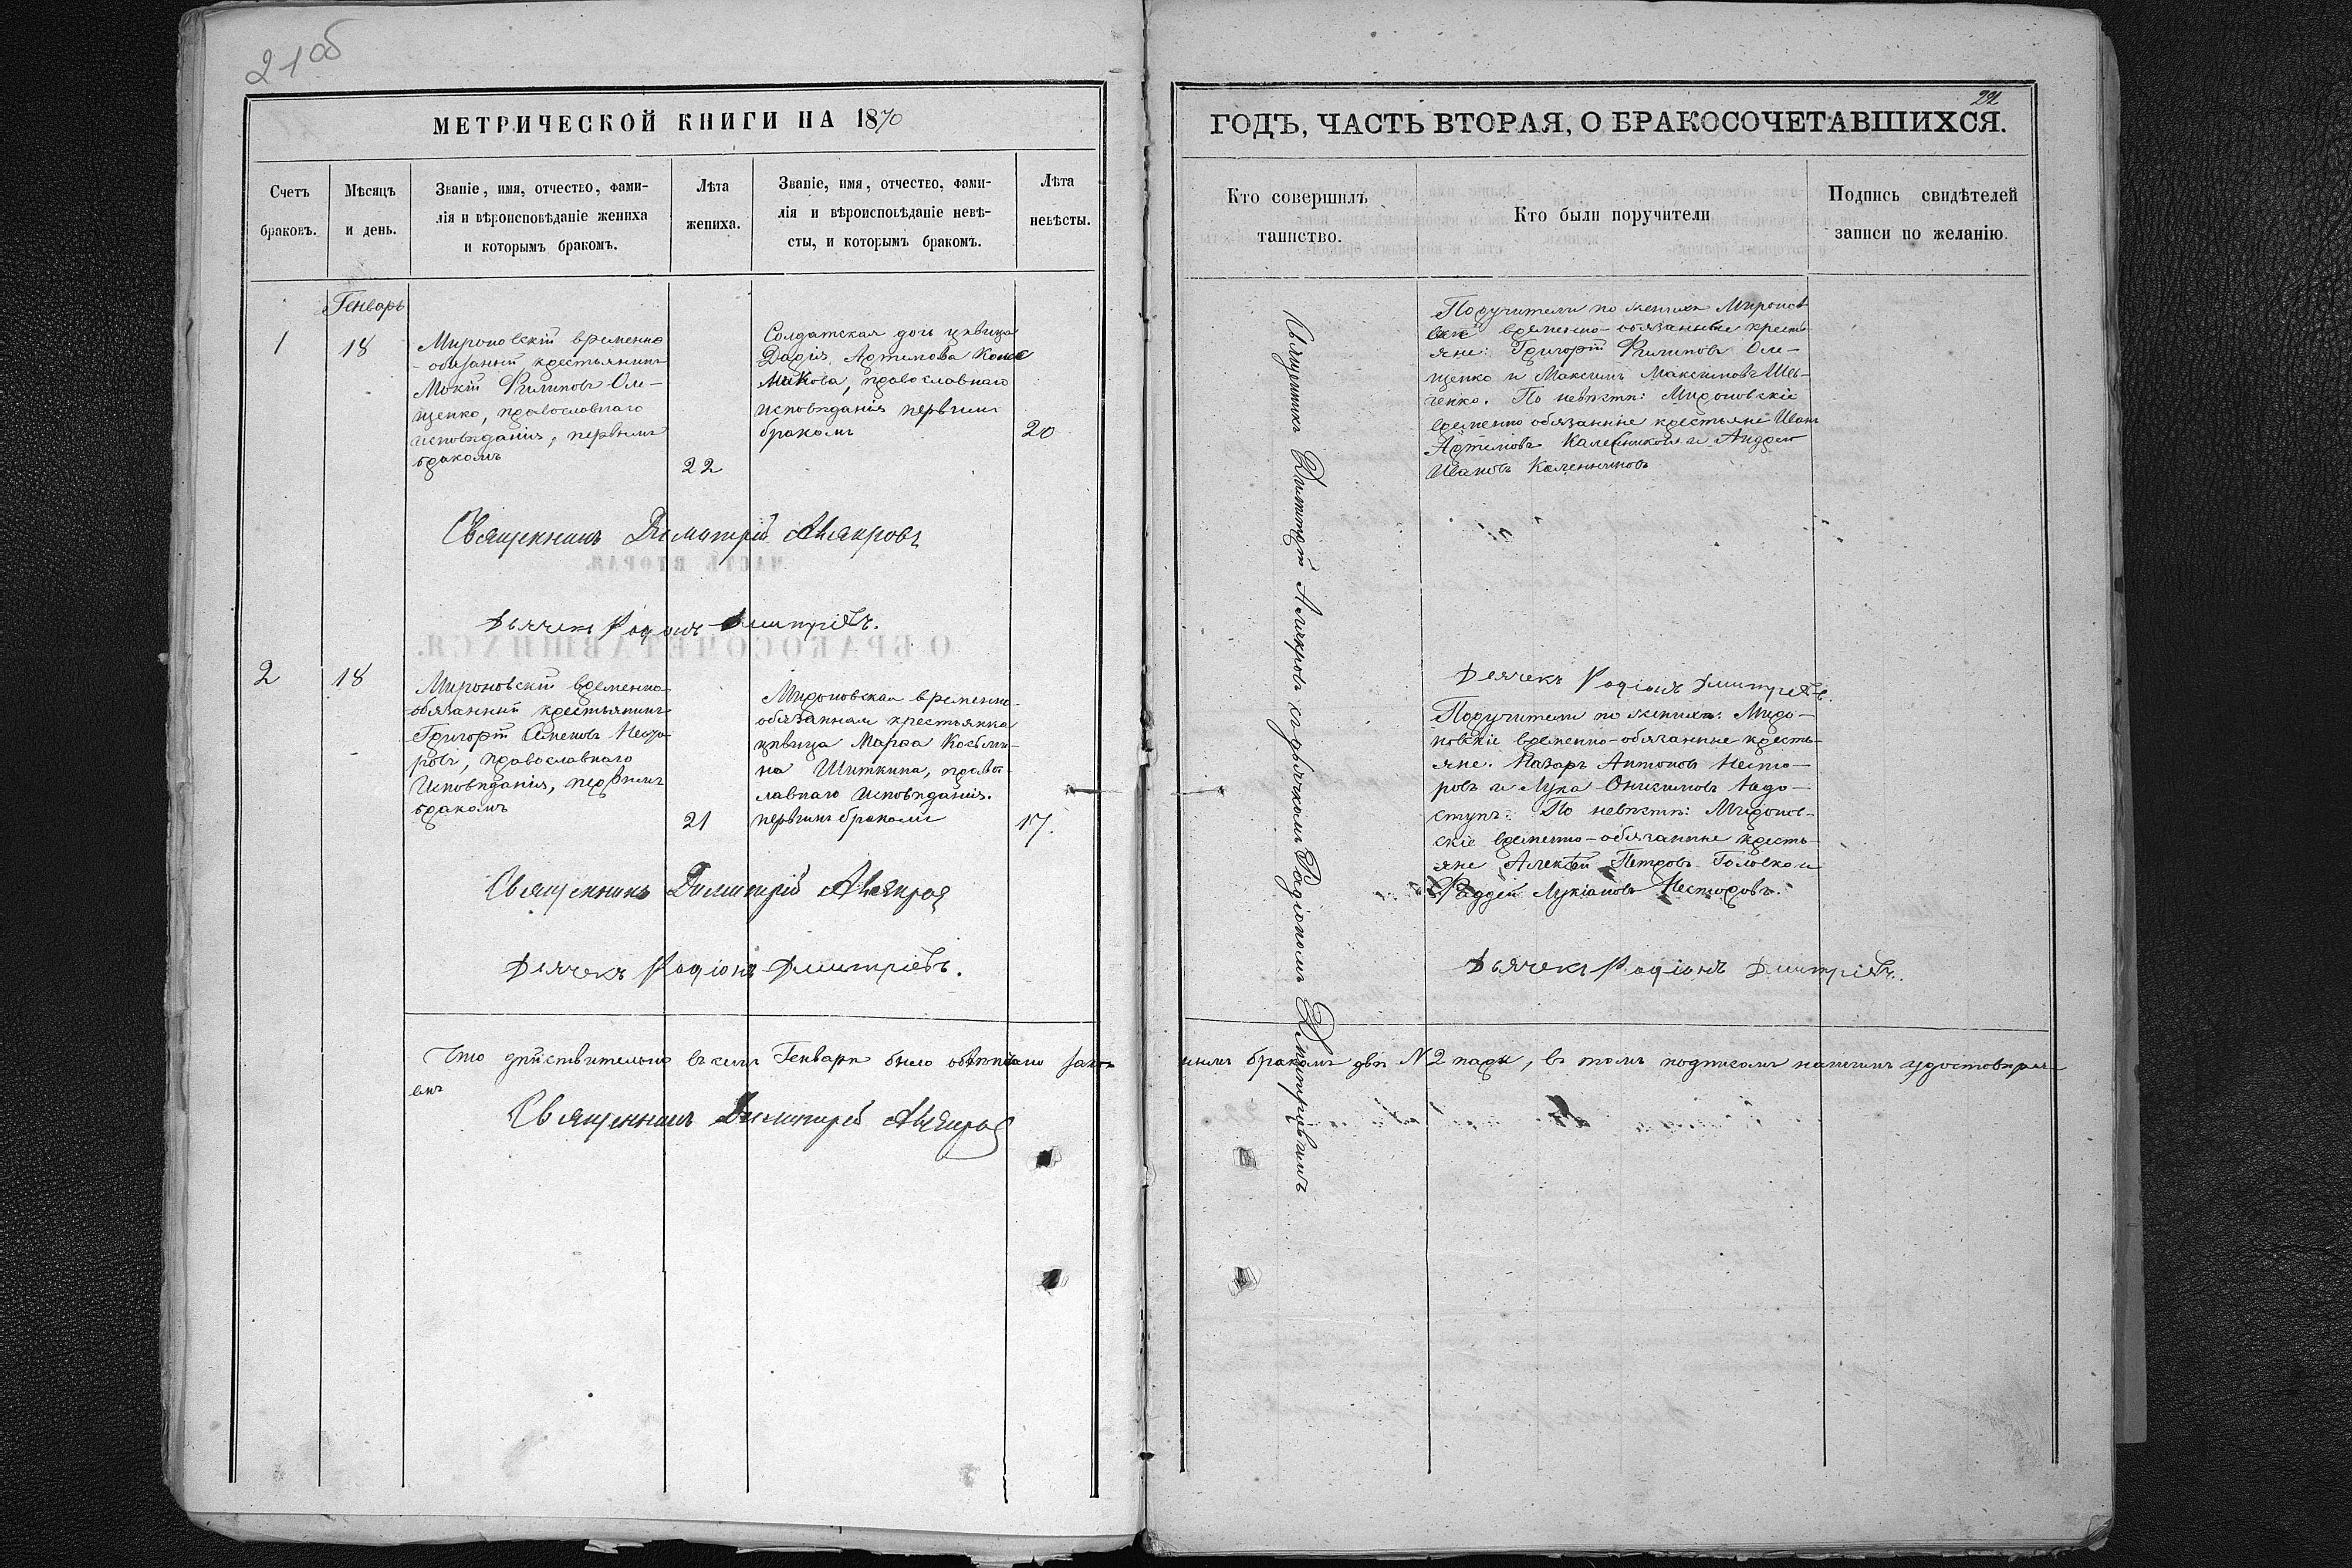 21об
МЕТРИЧЕСКОЙ КНИГИ НА 1870
Счетъ
браковъ.
Мѣсяцъ
и день.
Званіе, имя, отчество, фами-
лія и вѣроисповѣданіе жениха
и которымъ бракомъ.
Лѣта
жениха.
Званіе, имя, отчество, фами-
лія и вѣроисповѣданіе невѣ-
сты, и которымъ бракомъ.
Лѣта
невѣсты.
Генварь
1
18
Мироновскій временно
-обязанный крестьянинъ
Мокій Филиповъ Оле-
щенко, православнаго
исповѣданія, первымъ
бракомъ
22
Солдатская дочь дѣвица
Дарія Артемова
православнаго
исповѣданія первымъ
бракомъ
20
Священникъ Димитрій
Дьячекъ Родіонъ Дмитріевъ.
2
18
Мироновскій временно
обязанный крестьянинъ
Григорій Семеновъ Несто-
ровъ, православнаго
исповѣданія, первымъ
бракомъ
21
Мироновская временно-
обязанная крестьянка
дѣвица Марфа Косьми-
на Шиткина, правос-
лавнаго исповѣданія.
первымъ бракомъ
17.
Священникъ Димитрій
Дьячекъ Родіонъ Дмитріевъ.
Что дѣйствительно въ семъ Генварѣ было обвѣнчано закон
емъ
Священникъ Димитрій
22
ГОДЪ, ЧАСТЬ ВТОРАЯ, О БРАКОСОЧЕТАВШИХСЯ.
Кто совершилъ
таинство.
Кто были поручители
Подпись свидѣтелей
записи по желанію.
Священникъ Димитрій съ дьячкомъ Родіономъ Дмитріевымъ
Поручители по женихѣ Миронов
скіе временно-обязанные кресть
яне: Григорій Филиповъ Оле-
щенко и Максимъ Максимовъ Шев-
ченко. По невѣстѣ: Мироновскіе
временно обязанные крестьяне Иванъ
Артемовъ Калесниковъ и Андрей
Ивановъ Калесниковъ
Дьячекъ Родіонъ Дмитріевъ.
Поручители по женихѣ: Миро-
новскіе временно-обязанные кресть-
яне: Назаръ Антоновъ Несто-
ровъ и Лука Онисимовъ Авдо-
ступъ: По невѣстѣ: Миронов-
скіе временно-обязанные кресть-
яне Алексѣй Петровъ Головко и
Фаддей Лукіановъ Несторовъ.
Дьячекъ Родіонъ Дмитріевъ.
нымъ бракомъ двѣ №2 пары, въ томъ подписомъ нашимъ удостовѣря-